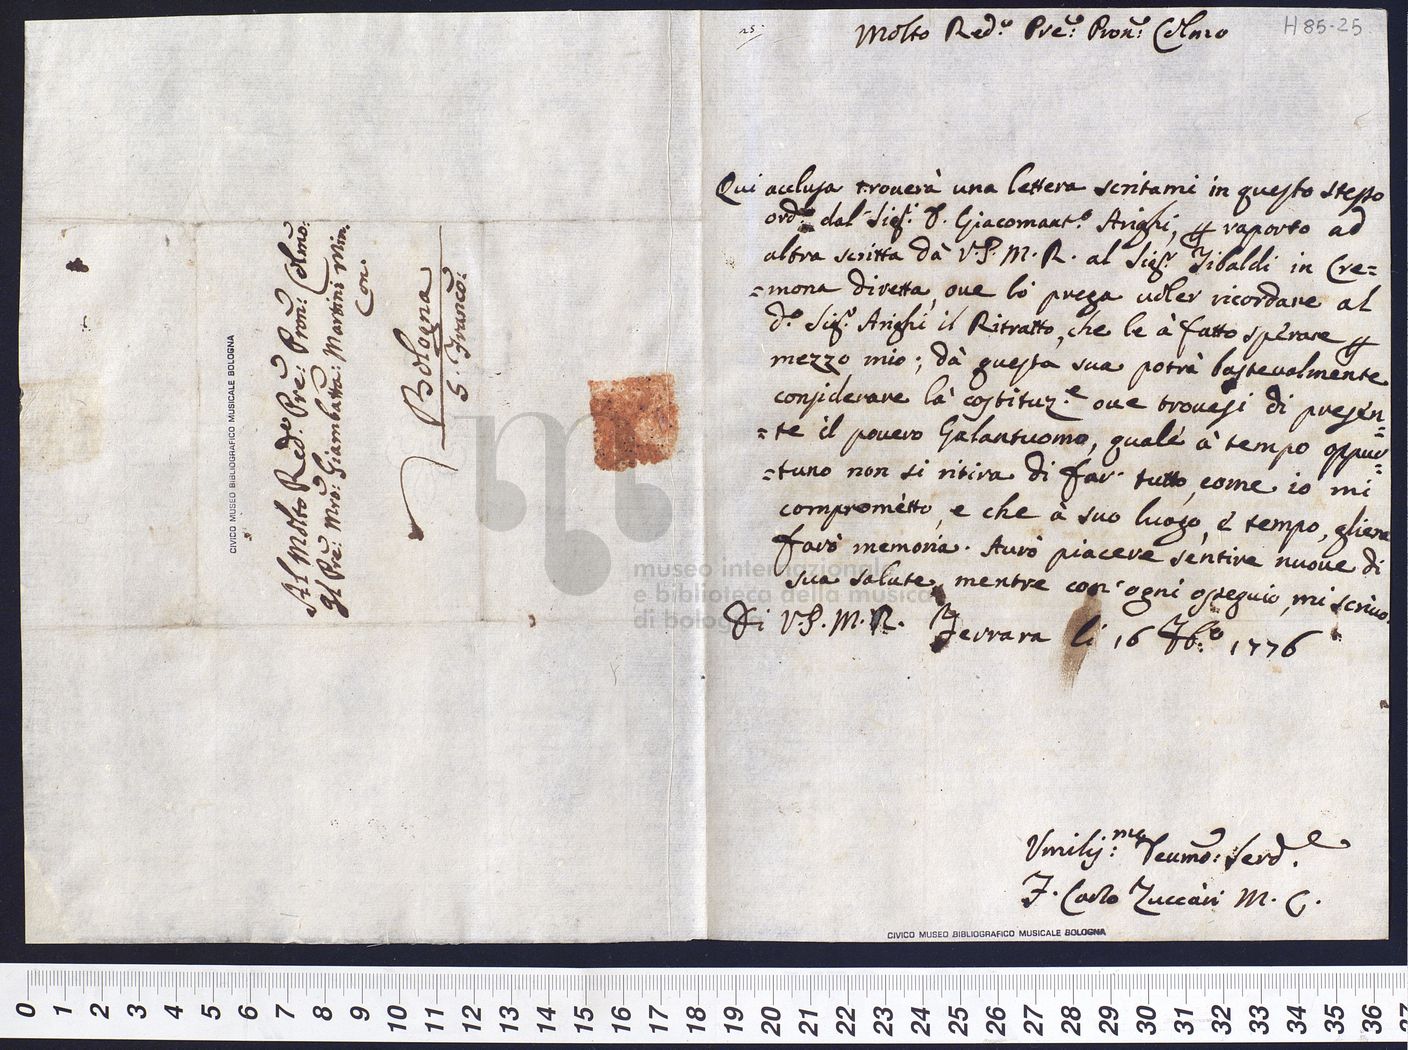 25.
Molto Red.º Pre: Pron: Colmo
H 85-25
Qui acclusa trouerà una lettera scritami in questo stesso
ord.º dal Sig.r D. Giacomant.º Arighi, raporto ad
altra scritta dà V.P.M.R. al Sig.r Tibaldi in Cre=
=mona diretta, oue lo prega uoler ricordare al
d.º Sig.r Arighi il Ritratto, che le à fatto sperare
mezzo mio; dà questa sua potrà basteualmente
considerare là costituz.e oue trouesi di presen=
=te il pouero Galantuomo, quale à tempo oppur=
=tuno non si ritira di far tutto, come io mi
comprometto, e che à suo luogo, è tempo, gliene
farò memoria. Aurò piacere sentire nuoue di
sua salute, mentre con ogni ossequio, mi scriuo
Di V.P.M.R. Ferrara li 16 7b.º 1776
Umiliss.mo Deumo: Serd.e
F. Carlo Zuccari M. C.
CIVICO MUSEO BIBLIOGRAFICO MUSICALE BOLOGNA
Al Molto Red.º Pre: Pron: Colmo:
Il Pre: Mro: Giambatta: Martini Min.
Con.
Bologna
S. Franco:
CIVICO MUSEO BIBLIOGRAFICO MUSICALE BOLOGNA
museo internazionale
e biblioteca della musica
di bologna
0 1 2 3 4 5 6 7 8 9 10 11 12 13 14 15 16 17 18 19 20 21 22 23 24 25 26 27 28 29 30 31 32 33 34 35 36 37